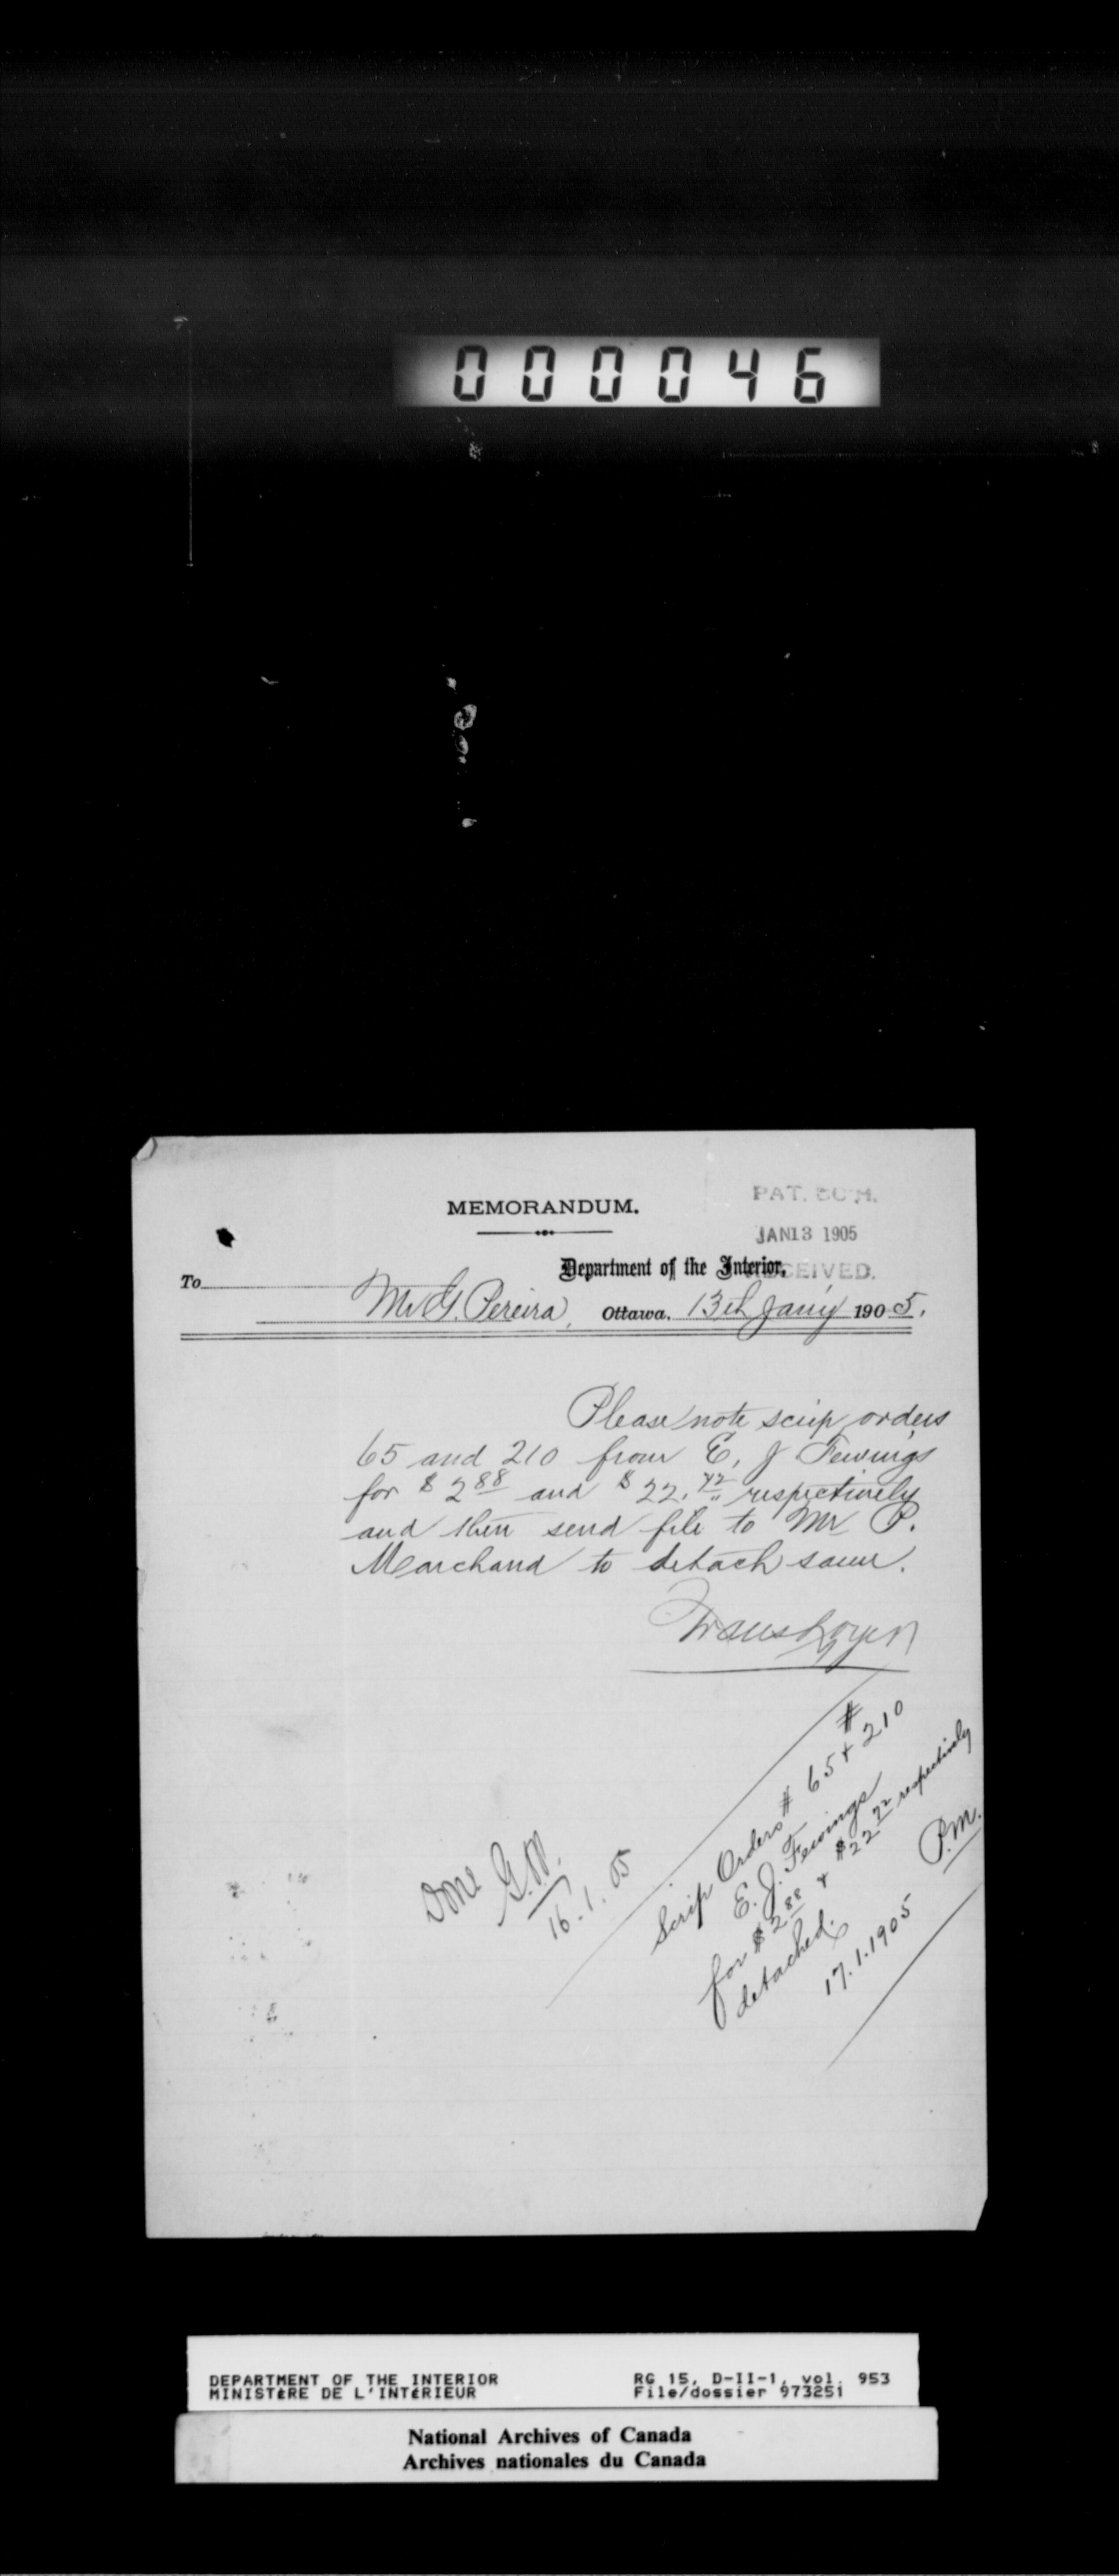 000046
MEMORANDUM.
PAT. BCH.
JAN 13 1905
RECEIVED.
Department of the Interior,
To Mr G. Pereira, Ottawa, 13th Jany 1905.
Please note scrip orders
65 and 210 from E. J Fewings
for $2 88 and $22. 72 respectively
and then send file to Mr P.
Marchand to detach same.
Done G.
16.1.05
Scrip Orders # 65 + # 210
E. J. Fewings
for $2 88 + $22 72 respectively
detached.
17.1.1905 P.M.
DEPARTMENT OF THE INTERIOR
MINISTÈRE DE L'INTÉRIEUR
RG 15, D-II-1, vol. 953
File/dossier 973251
National Archives of Canada
Archives nationales du Canada